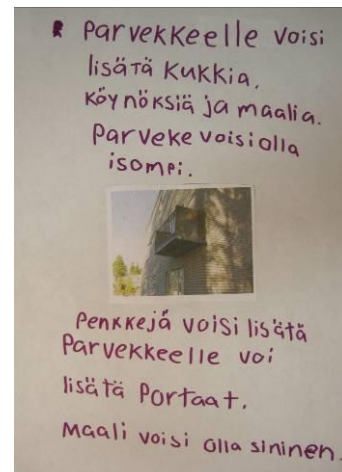 Parvekkeelle voisi
lisätä kukkia,
köynöksiä ja maalia.
Parveke voisi olla
isompi.
Penkkejä voisi lisätä
Parvekkeelle voi
lisätä portaat.
Maali voisi olla sininen.